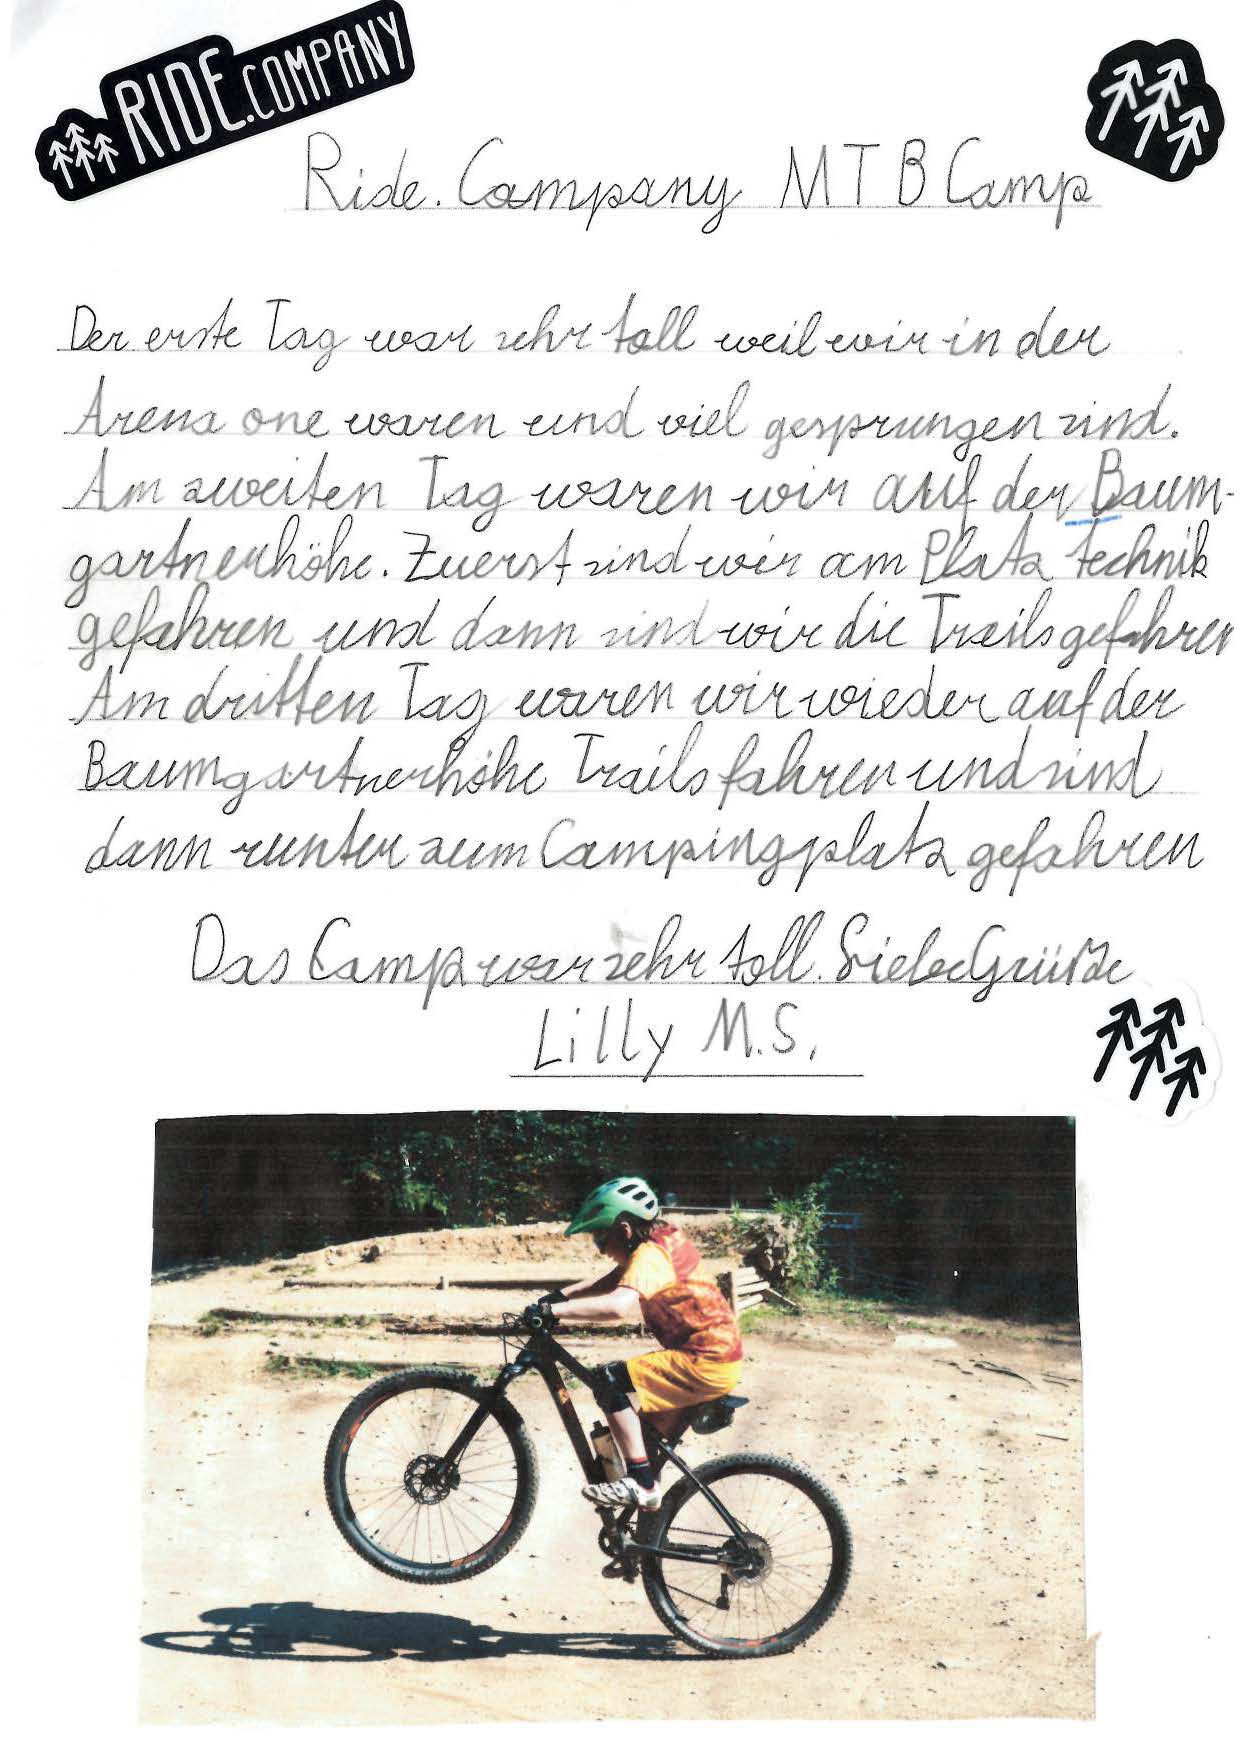 RIDE.COMPANY
Ride.Company MTB Camp
Der erste Tag war sehr toll weil wir in der
Arena one waren und viel gesprungen sind.
Am zweiten Tag waren wir auf der Baum-
gartnerhöhe. Zuerst sind wir am Platz technik
gefahren und dann sind wir die Trails gefahren
Am dritten Tag waren wir wieder auf der
Baumgartnerhöhe Trails fahren und sind
dann runter zum Campingplatz gefahren
Das Camp war sehr toll. Liebe Grüße
Lilly M.S.